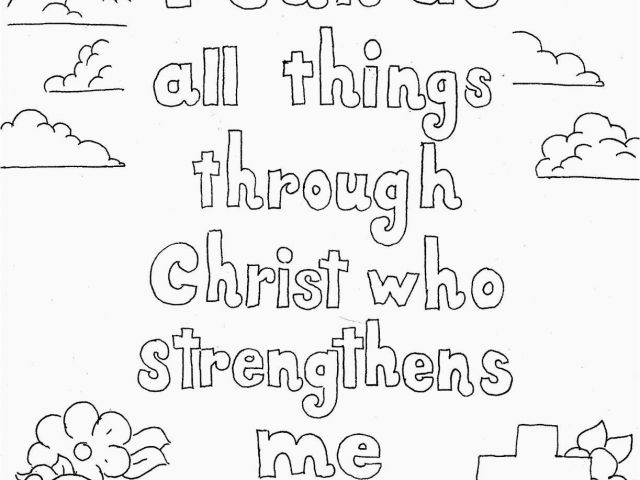 I can do
all things
through
Christ who
strengthens
me